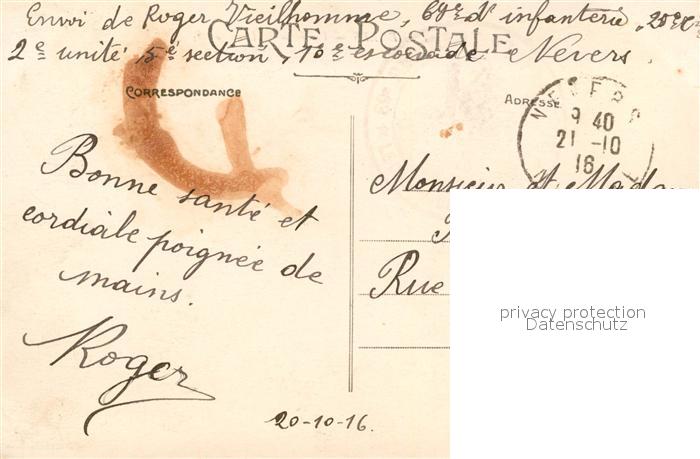 Envoi de Roger Vieilhomme, 68e d'infanterie, 20e C
CARTE POSTALE
2e unité, 5e section, 10e escouade Nevers.
CORRESPONDANCE
ADRESSE
NEVERS
9 40
21-10
16
Bonne santé et
cordiale poignée de
mains.
Roger
20-10-16.
Monsieur et Mada
Rue
privacy protection
Datenschutz